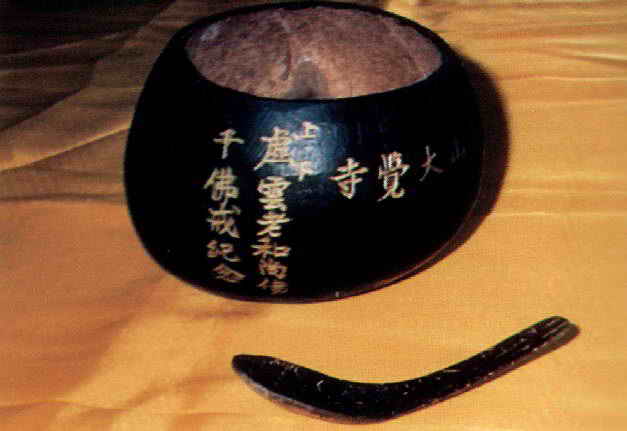 山大覺寺
上虛下雲老和尚傳
千佛戒紀念